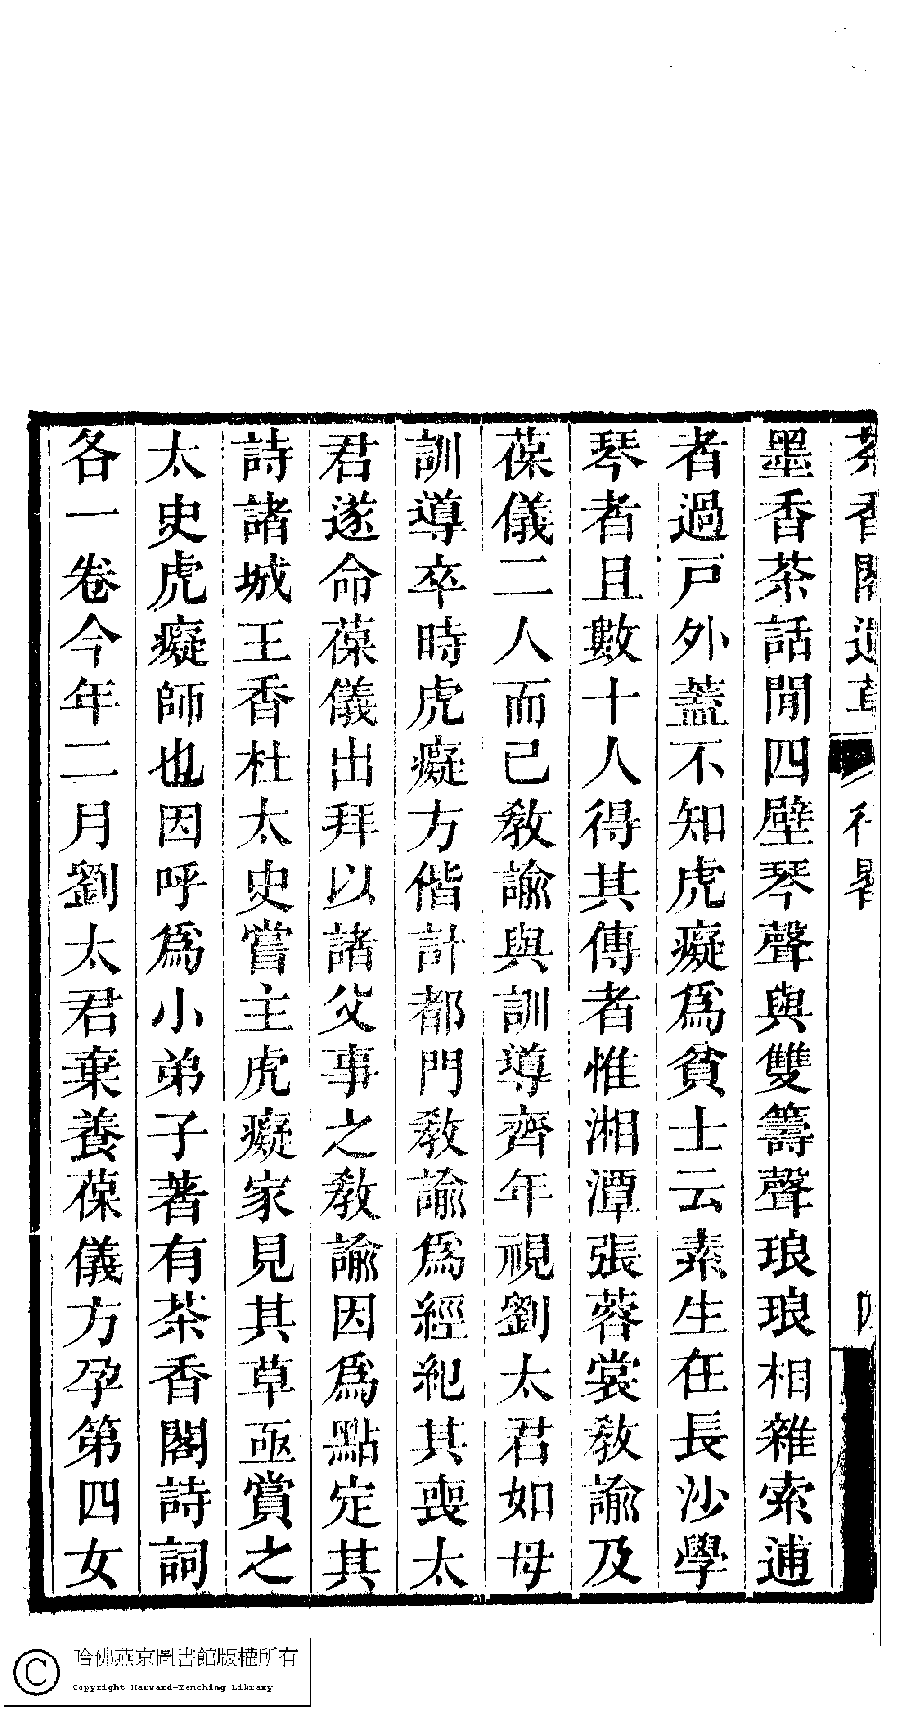 茶香閣遺草 行畧 四
墨香茶話閒四壁琴聲與雙籌聲琅琅相雜索逋
者過戸外蓋不知虎癡爲貧士云素生在長沙學
琴者且數十人得其傳者惟湘潭張蓉裳敎諭及
葆儀二人而已敎諭與訓導齊年視劉太君如母
訓導卒時虎癡方偕計都門敎諭爲經紀其喪太
君遂命葆儀出拜以諸父事之敎諭因爲點定其
詩諸城王香杜太史嘗主虎癡家見其草亟賞之
太史虎癡師也因呼爲小弟子著有茶香閣詩詞
各一卷今年二月劉太君棄養葆儀方孕第四女
哈佛燕京圖書館版權所有
Copyright Harvard-Yenching Library